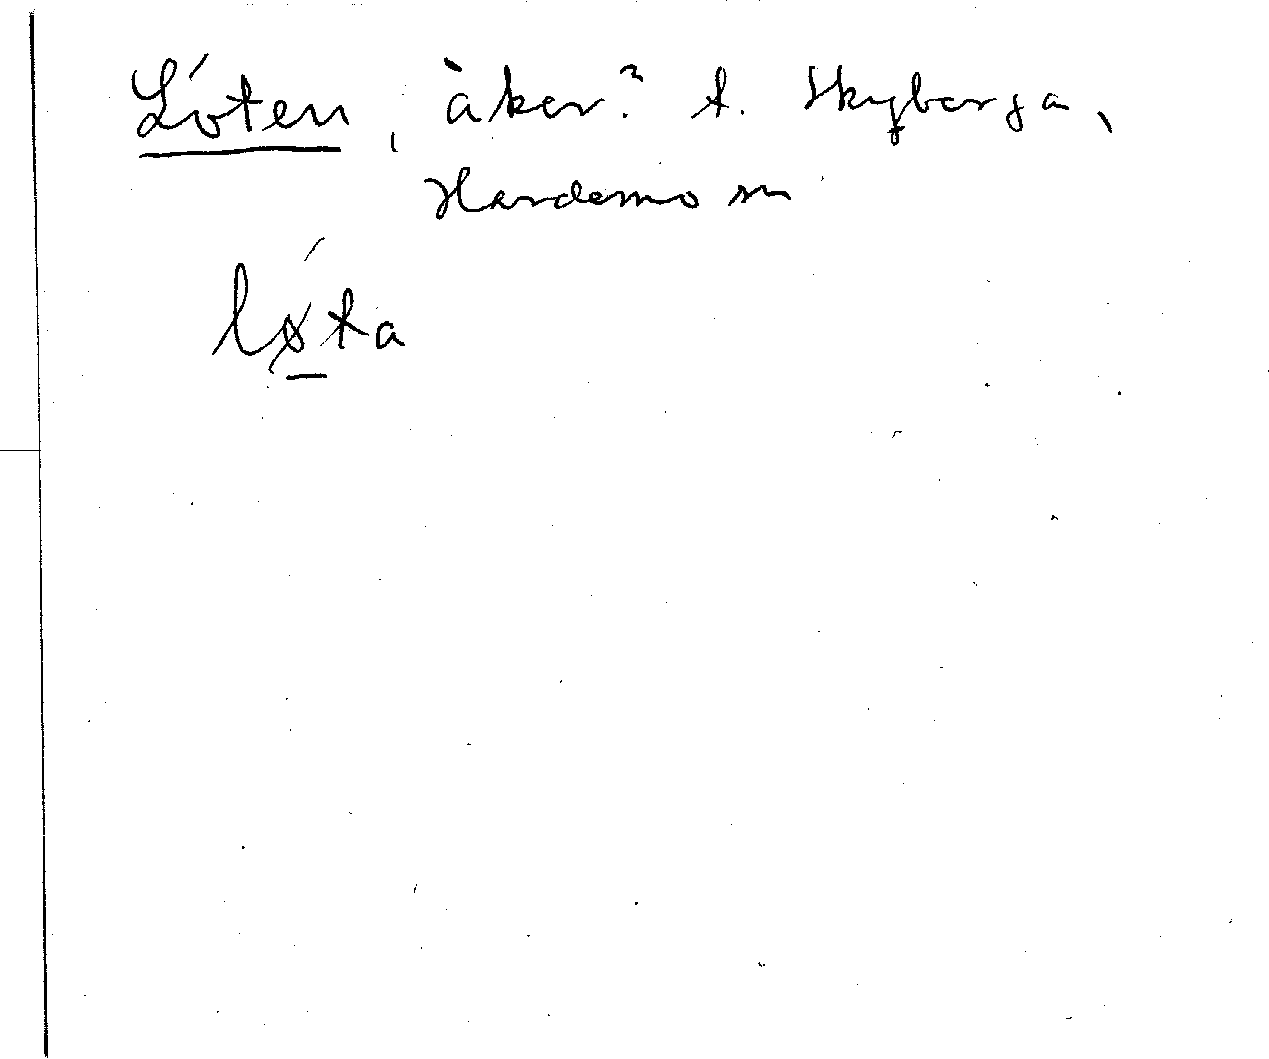 Lóten, åker? t. Skyberga,
Hardemo sn
lǿta